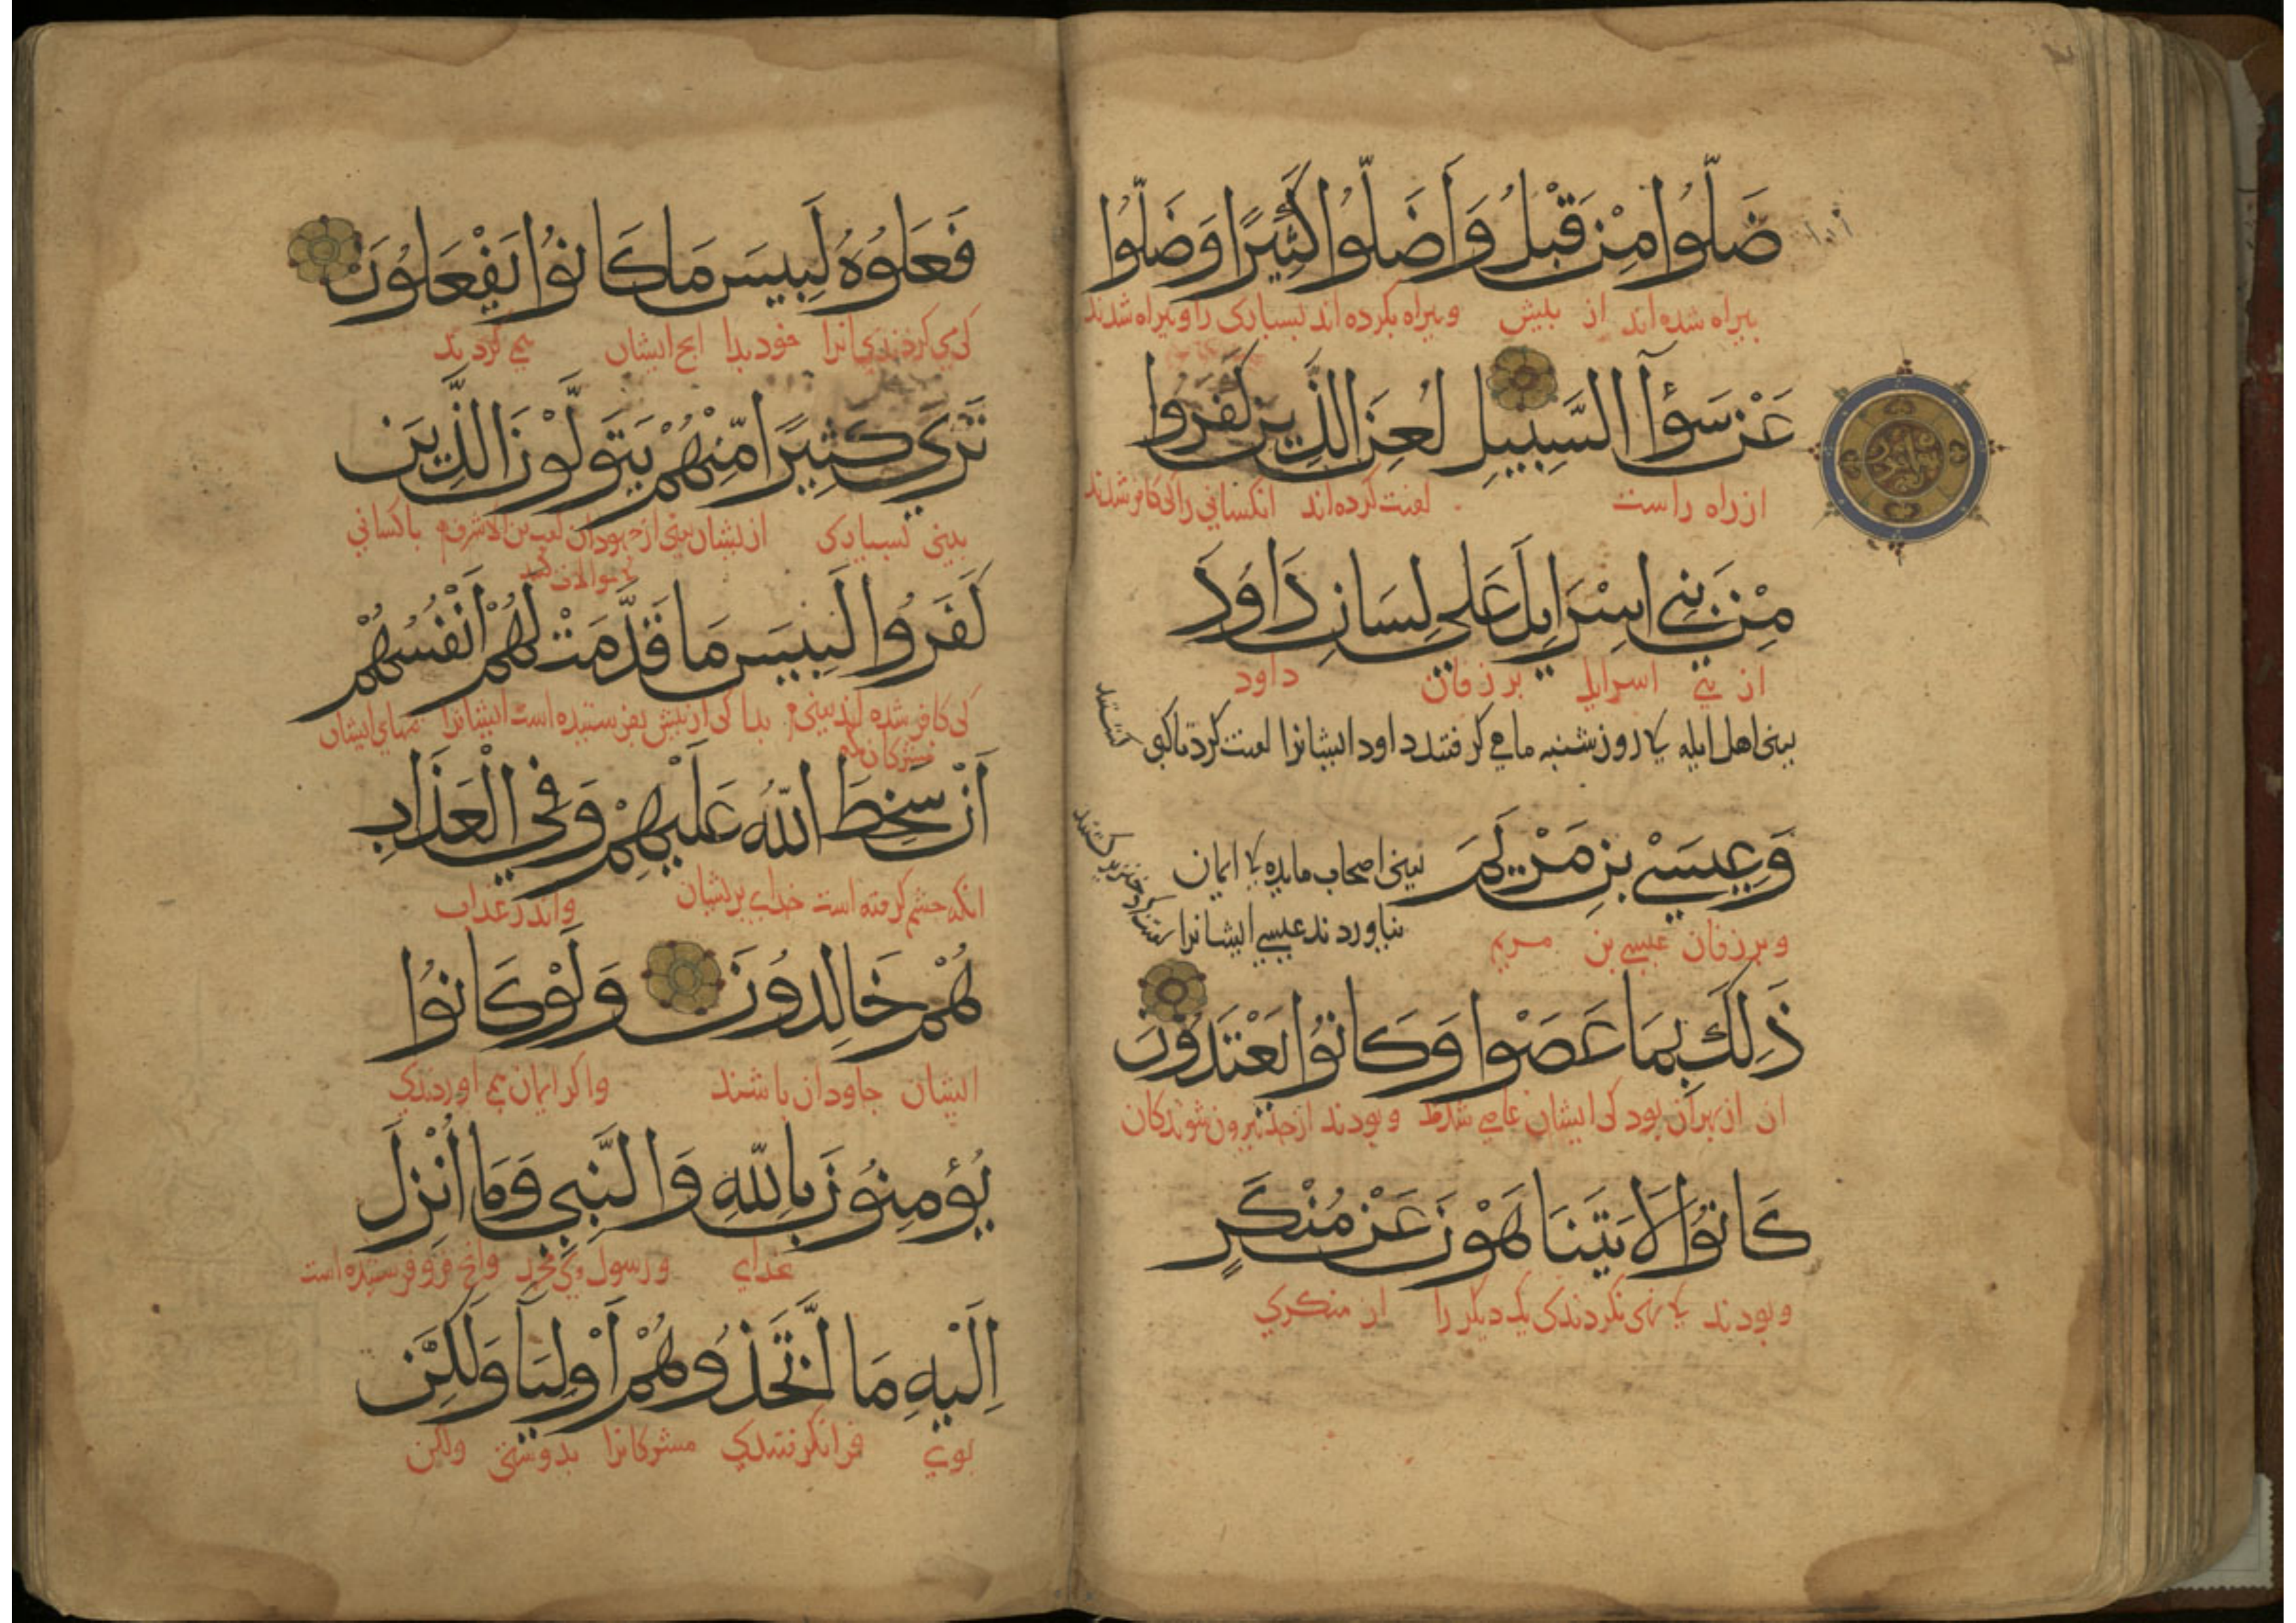 ضَلُّوا مِنْ قَبْلُ وَأَضَلُّوا كَثِيرًا وَضَلُّوا
بیراه شده‌اند از پیش وبیراه بکرده‌اند بسیاری را وبیراه شدند
عَنْ سَوَآءِ السَّبِيلِ لُعِنَ الَّذِينَ كَفَرُوا
از راه راست لعنت کرده‌اند آنکسانی را کی کافر شدند
مِنْ بَنِي اسْرَايِلَ عَلَى لِسَانِ دَاوُدَ
از بنی اسرایل بر زفان داود
یعنی اهل ایله کا روز شنبه ماهی گرفتند داود ایشانرا لعنت کرد تا کپی گشتند
وَعِيسَى بْنِ مَرْيَمَ یعنی اصحاب مایده کا ایمان
نیاوردند عیسی ایشانرا
وبر زفان عیسی بن مریم
ذَلِكَ بِمَا عَصَوْا وَكَانُوا يَعْتَدُونَ
ان از بهر آن بود کی ایشان عاصی شدند وبودند از حد بیرون شوندکان
كَانُوا لَا يَتَنَاهَوْنَ عَنْ مُنْكَرٍ
وبودند کا نهی نکردندی یک دیگر را از منکری
فَعَلُوهُ لَبِيسَ مَا كَانُوا يَفْعَلُونَ
کی می کردندی آنرا خود بدا انج ایشان می کردند
تَرَى كَثِيرًا مِّنْهُمْ يَتَوَلَّوْنَ الَّذِينَ
بینی بسیاری از ایشان یعنی از جهودان کعب بن الاشرف با کسانی
موالات کنند
كَفَرُوا لَبِيسَ مَا قَدَّمَتْ لَهُمْ أَنْفُسُهُمْ
کی کافر شده‌اند یعنی بدا کی از پیش بفرستیده است ایشانرا تنهای ایشان
مشرکان مکه
أَنْ سَخِطَ اللَّهُ عَلَيْهِمْ وَفِي الْعَذَابِ
انکه خشم گرفته است خدای بریشان واندر عذاب
هُمْ خَالِدُونَ وَلَوْ كَانُوا
ایشان جاودان باشند واکر ایمان می اوردندی
يُؤْمِنُونَ بِاللَّهِ وَالنَّبِيِّ وَمَا أُنْزِلَ
خدای ورسول وی محمد وانج فرو فرستیده است
إِلَيْهِ مَا اتَّخَذُوهُمْ أَوْلِيَآ وَلَكِنَّ
بوی فرا نگرفتندی مشرکانرا بدوستی ولکن